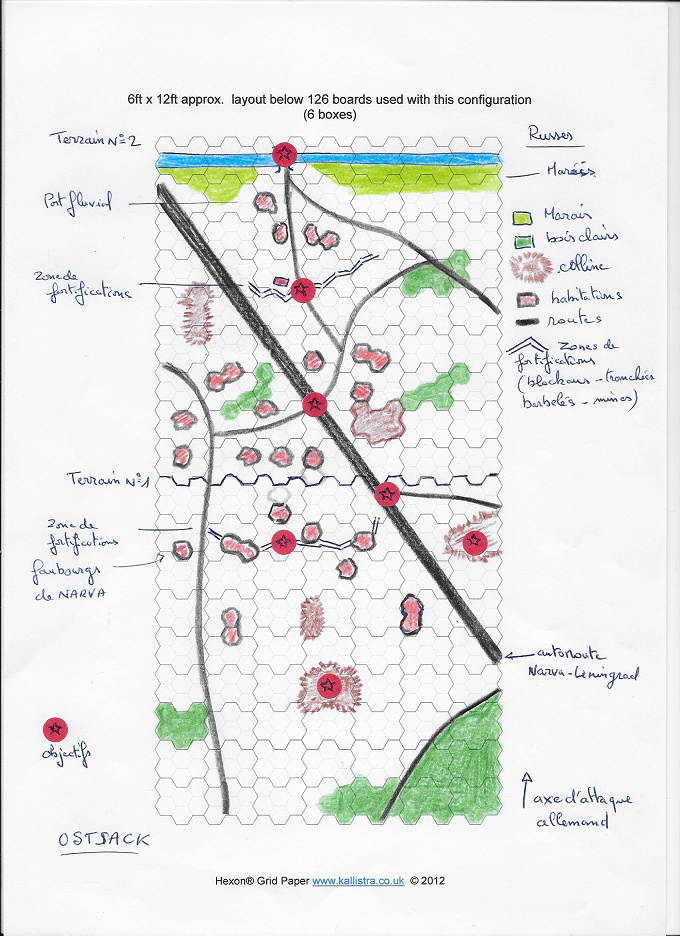 6ft x 12ft approx. layout below 126 boards used with this configuration
(6 boxes)
Terrain N°2
Russes
Port fluvial
Marais
bois clairs
colline
habitations
routes
Zone de
fortifications
Zones de
fortifications
(blockaus - tranchées
barbelés - mines)
Terrain N°1
Zone de
fortifications
faubourgs
de NARVA
autoroute
Narva-Leningrad
objectifs
axe d'attaque
allemand
OSTSACK
Hexon® Grid Paper www.kallistra.co.uk © 2012